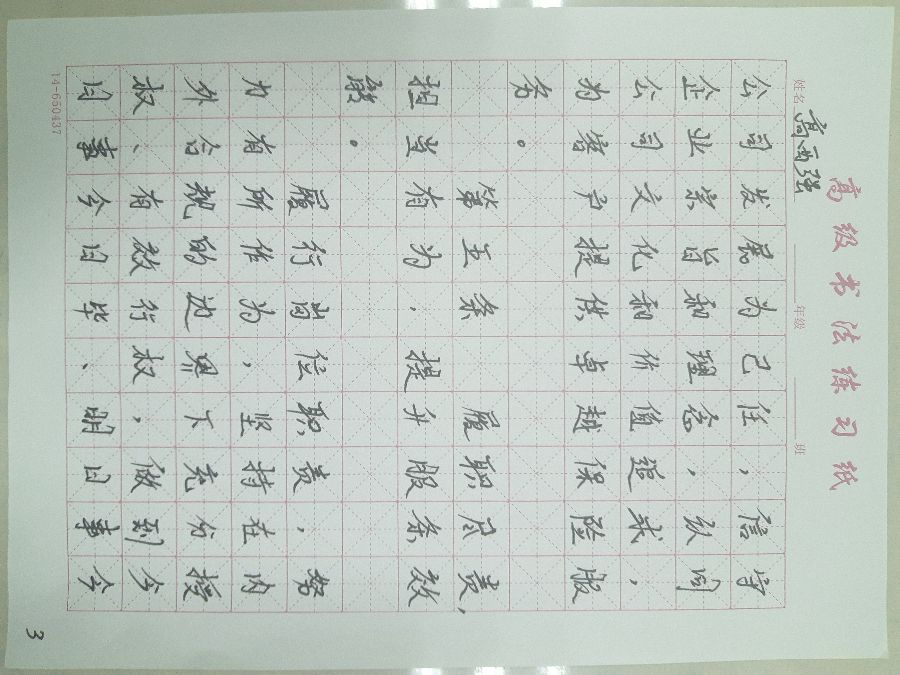 高级书法练习纸
姓名 高西强 年级 班
公司发展为己任，信守
企业宗旨和理念，认同
公司文化和价值追求，
为客户提供卓越保险服
务。
第五条 履职尽责，
担当有为.提升服务效
能。
履行岗位职责，努
力有所作为，坚持在内
外合规的边界下充分授
权、有效行权，做到今
日事今日毕、明日事今
14-650437
3